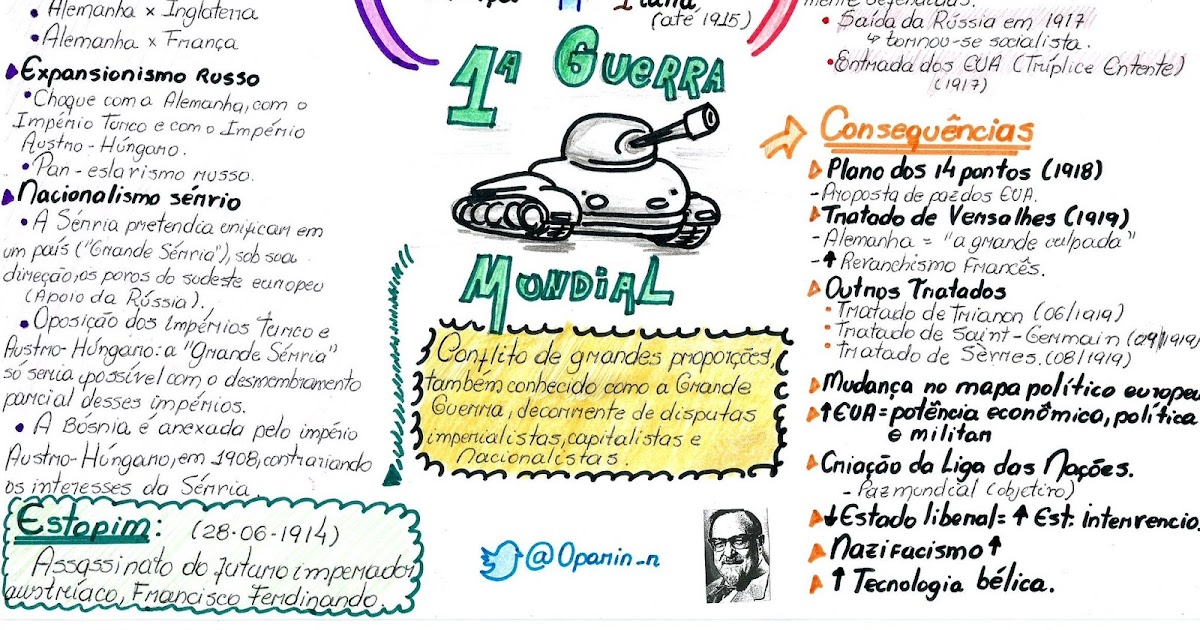 • Alemanha x Inglaterra
• Alemanha x França
Expansionismo Russo
• Choque com a Alemanha, com o
Império Turco e com o Império
Austro-Húngaro.
• Pan-eslavismo russo.
Nacionalismo sérvio
• A Sérvia pretendia unificar em
um país ("Grande Sérvia"), sob sua
direção, os povos do sudeste europeu
(Apoio da Rússia).
• Oposição dos impérios turco e
Austro-Húngaro: a "Grande Sérvia"
só seria possível com o desmembramento
parcial desses impérios.
• A Bósnia é anexada pelo império
Austro-Húngaro, em 1908, contrariando
os interesses da Sérvia.
Estopim: (28-06-1914)
Assassinato do futuro imperador
austríaco, Francisco Ferdinando.
(até 1915)
1ª Guerra
Mundial
Conflito de grandes proporções,
também conhecido como a Grande
Guerra, decorrente de disputas
imperialistas, capitalistas e
Nacionalistas.
@Oparin_r
• Saída da Rússia em 1917
↳ tornou-se socialista.
• Entrada dos EUA (Tríplice Entente)
(1917)
Consequências
Plano dos 14 pontos (1918)
- Proposta de paz dos EUA.
Tratado de Versalhes (1919)
- Alemanha = "a grande culpada"
- ↑ Revanchismo Francês.
Outros Tratados
• Tratado de Trianon (06/1919)
• Tratado de Saint-Germain (09/1919)
• Tratado de Sèrves. (08/1919)
Mudança no mapa político europeu
↑ EUA = potência econômica, política
e militar
Criação da Liga das Nações.
- Paz mundial (objetivo)
↓ Estado liberal = ↑ Est. intervencio
Nazifacismo ↑
↑ Tecnologia bélica.